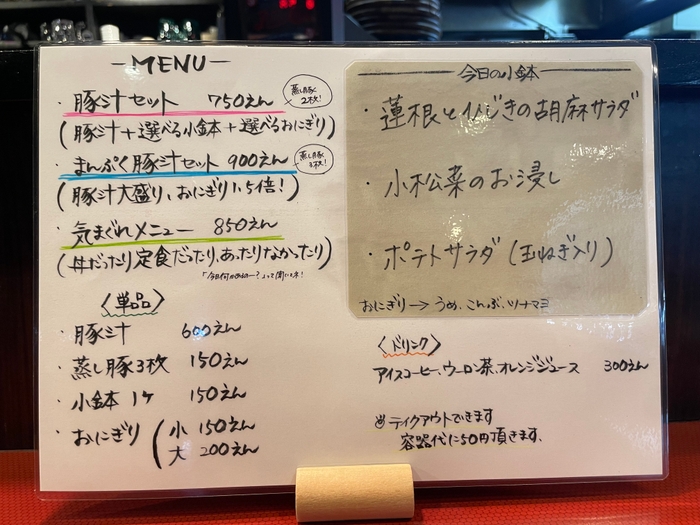 -MENU-
・豚汁セット 750えん
蒸し豚2枚!
(豚汁+選べる小鉢+選べるおにぎり)
・まんぷく豚汁セット 900えん
蒸し豚3枚!
(豚汁大盛り、おにぎり1.5倍!)
・気まぐれメニュー 850えん
(丼だったり定食だったり、あったりなかったり)
〈単品〉
・豚汁 600えん
・蒸し豚3枚 150えん
・小鉢1ケ 150えん
・おにぎり(小 150えん
大 200えん
今日の小鉢
・蓮根とひじきの胡麻サラダ
・小松菜のお浸し
・ポテトサラダ(玉ねぎ入り)
おにぎり→うめ、こんぶ、ツナマヨ
〈ドリンク〉
アイスコーヒー、ウーロン茶、オレンジジュース 300えん
テイクアウトできます
容器代に50円頂きます、